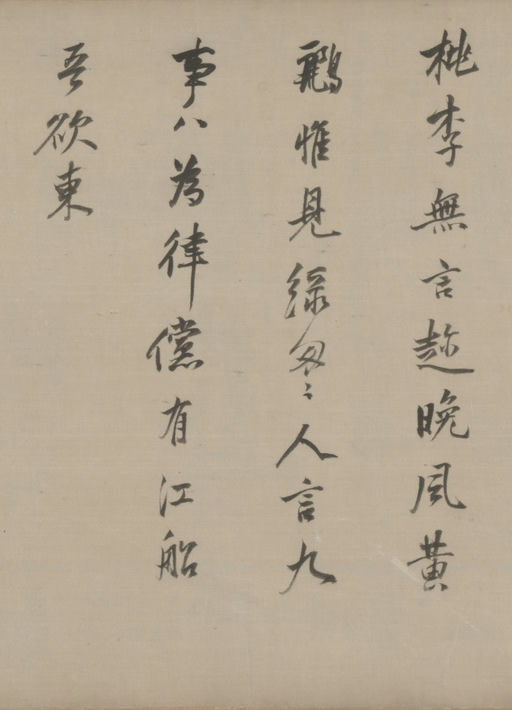 桃李無言趂晚風黃
鸝惟見綠匆〻人言九
事八為律儻有江船
吾欲東